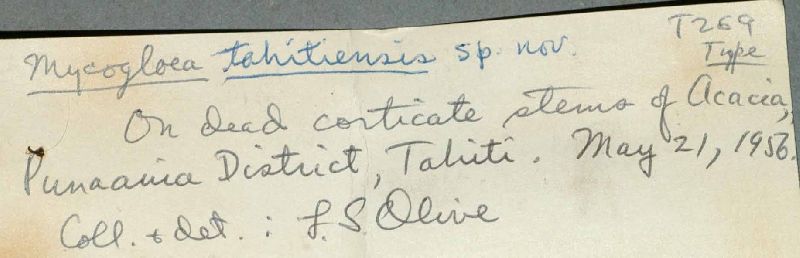 T269
Type
Mycogloea tahitiensis sp. nov.
On dead corticate stems of Acacia,
Punaauia District, Tahiti. May 21, 1956.
Coll. & det. : L. S. Olive